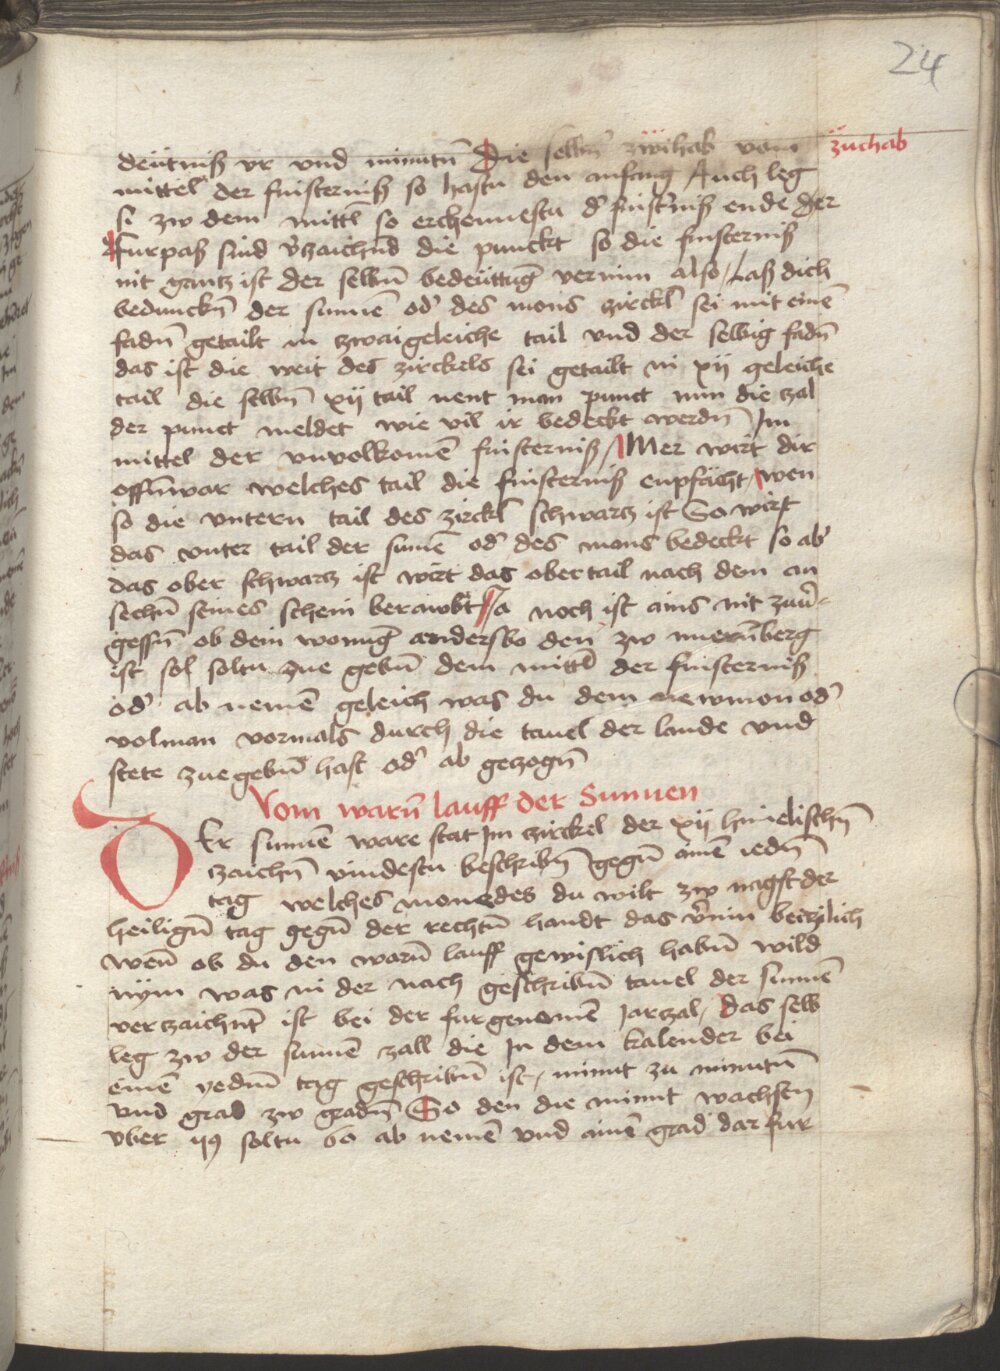 24
deütniß vr vnd minutñ Die selbñ zwihab vom zuchab
mittel der finsterniß so hastu den anfang Auch leg
si zw dem mittl so erchennestu d' finst'niß ende Der
furpaß sind v'zaichnd die punckt so die finsterniß
nit gantz ist der selbñ bedeüttung vernim also / Laß dich
beduncken̄ der sunnē od' des mons zirckl sei mit einē
fadñ getailt in zwai geleiche tail vnd der selbig fadñ
das ist die weit des zirckels sei getailt in xij geleiche
tail die selbñ xij tail nent man punct nun die zal
der punct meldet wie vil ir bedeckt werdñ Im
mittel der vnvolkomē finsterniß / Mer wirt dir
offñwar welches tail die finsterniß enpfächt / wen
so die vntern tail des zirckl schwartz ist So wirt
das vnter tail der sunē od' des mons bedeckt so ab'
das ober schwartz ist wirt das ober tail nach dem an
sechñ seines schein berawbt Ja noch ist ains nit zuu'-
gessñ ob dein wonūg anderswo den zw nuerñberg
ist sol soltu zue gebñ dem mittl der finsterniß
od' ab nemē geleich was du dem newmon od'
volman vormals durch die tauel der lande vnd
stete zuegebñ hast od' ab gezogñ
Vom warñ lauff der Sunnen
DEr sunnē ware stat Im zirckel der xij himelischñ
zaichñ vindestu beschribñ gegñ ainē iedñ
tag welches monedes du wilt zw nagst der
heiligñ tag gegñ der rechtñ handt das v'nim beizilich
wen̄ ob du den warñ lauff gewislich habñ wild
nym was in der nach geschribñ tauel der sunnē
verzaichnt ist bei der furgenomē Jarzal / das selb
leg zw der sunnē zall die In dem kalender bei
einē yedñ tag geschribñ ist / minut zu minutñ
vnd grad zw gradñ So den die minut wachsen
vber 59 soltu 60 ab nemē vnd ainē grad dar fur